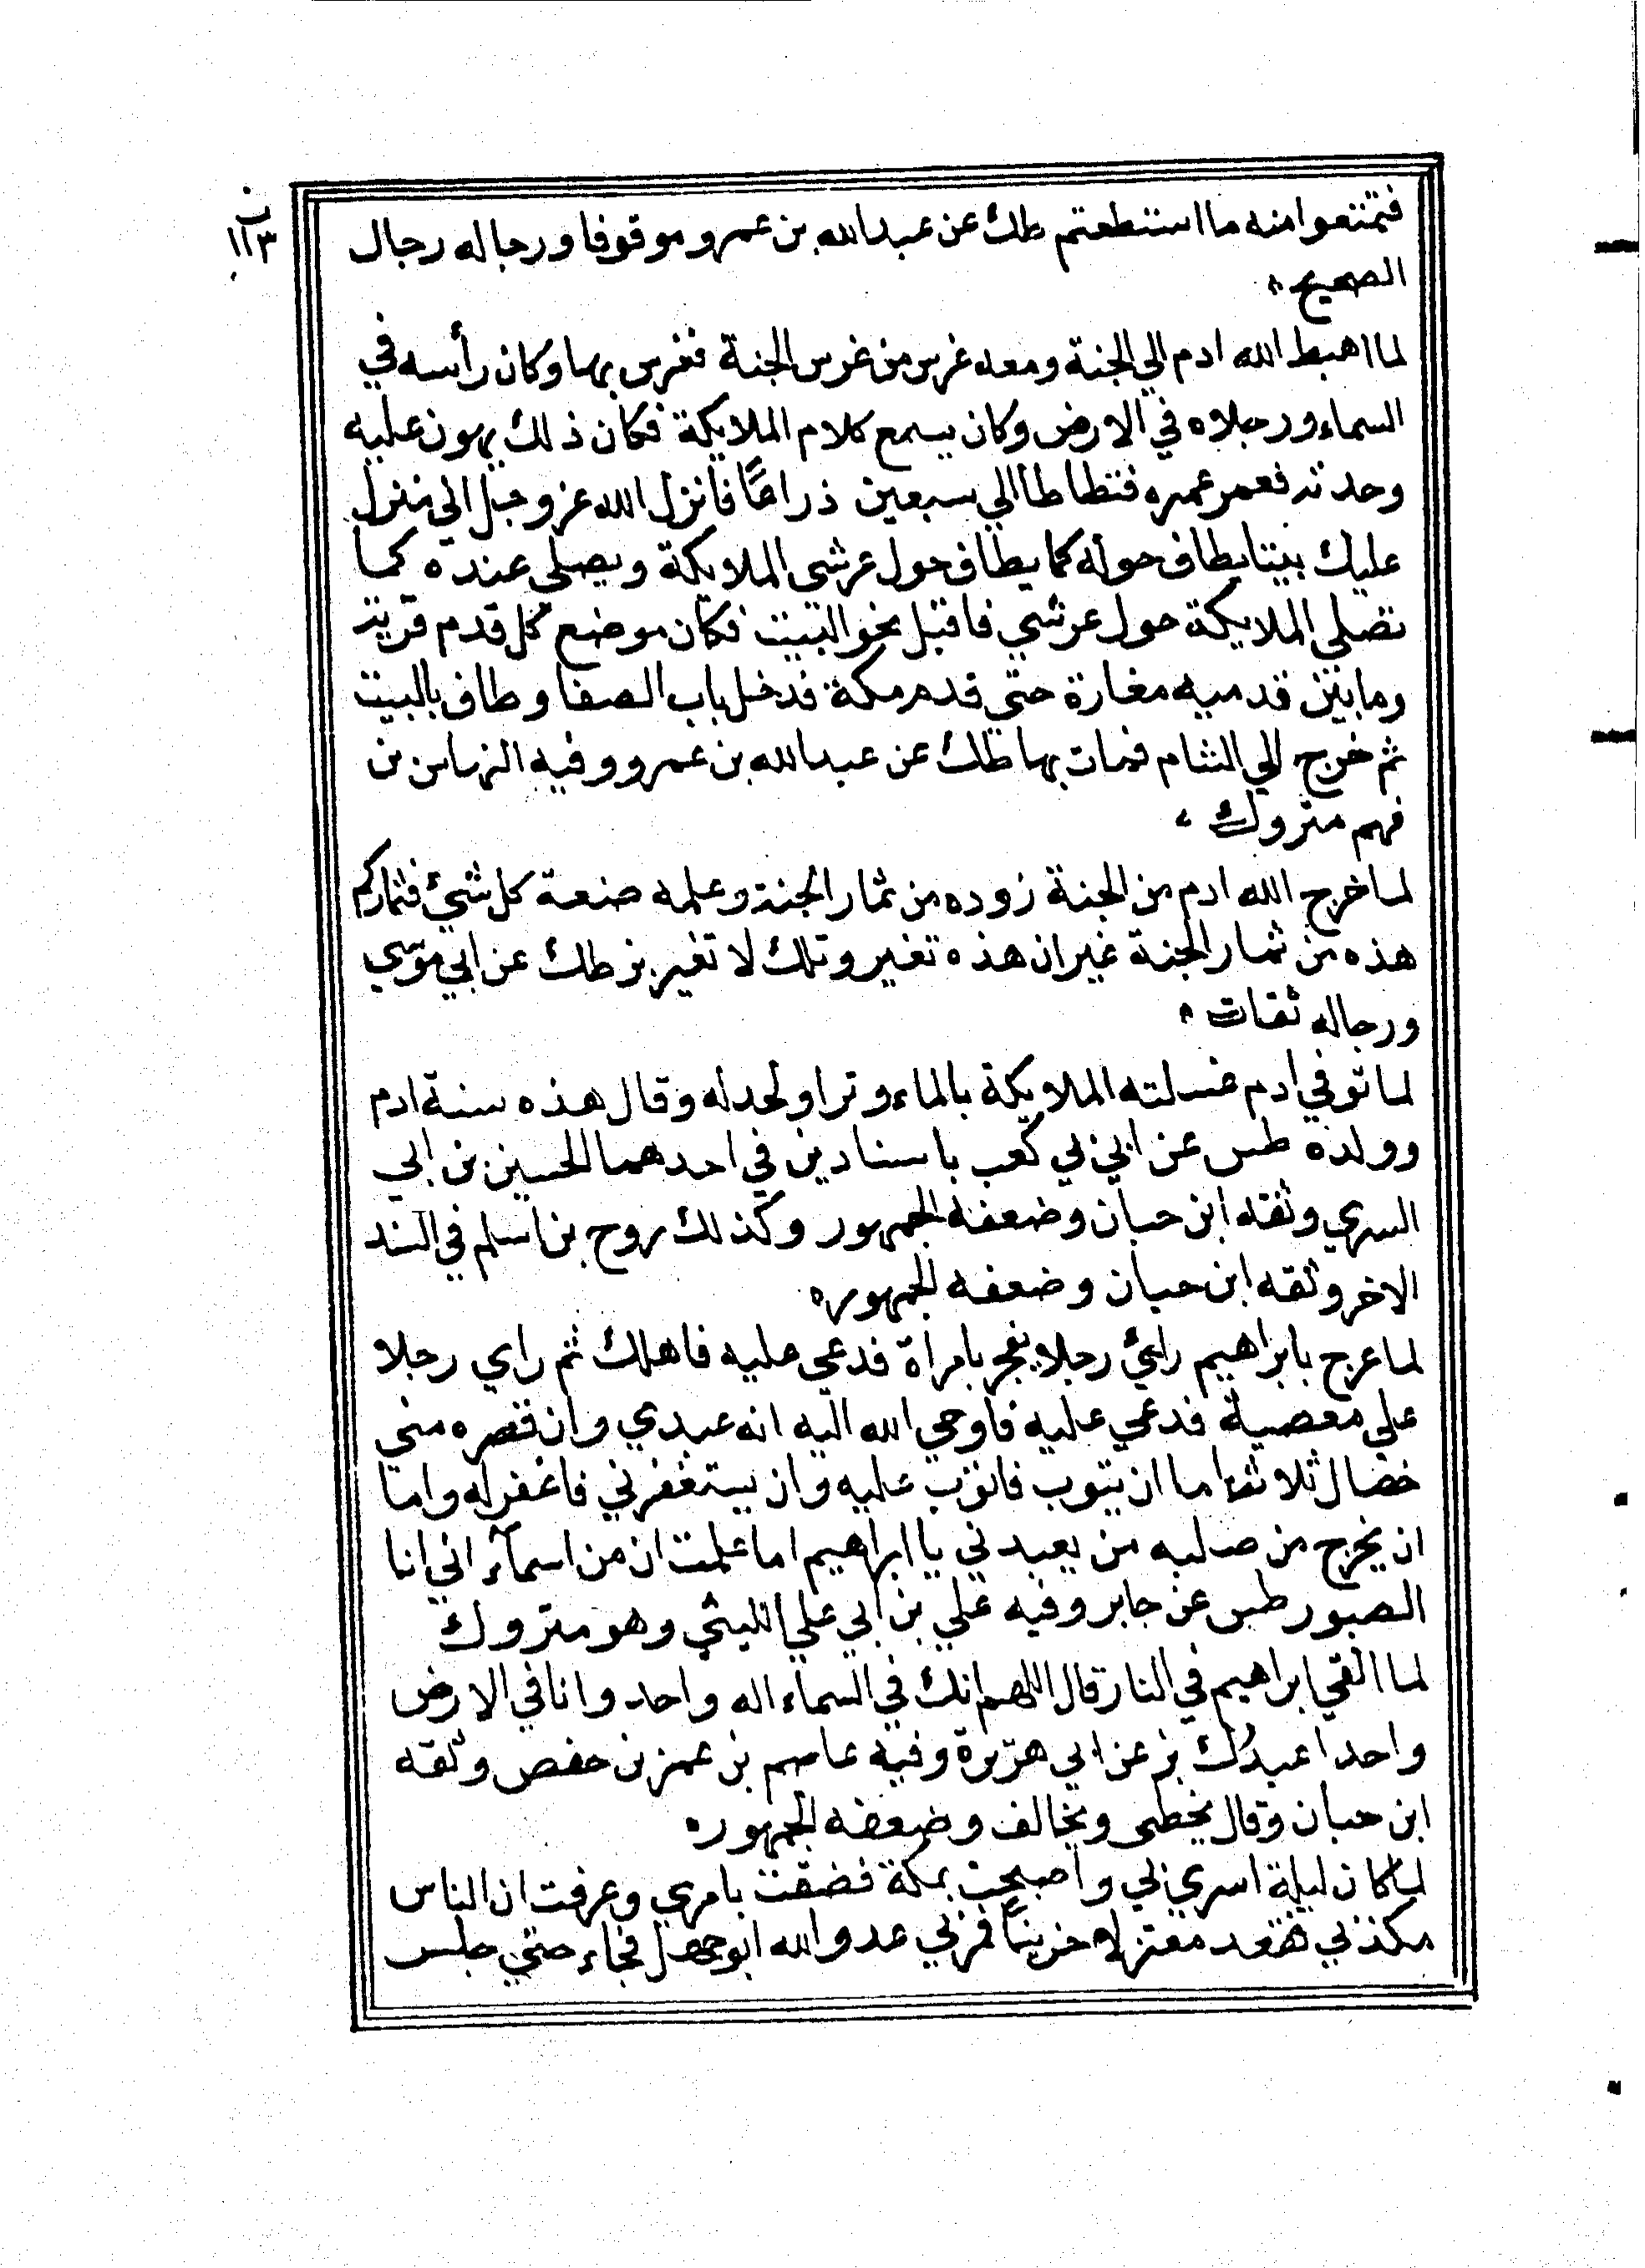 فتمتعوا منه ما استطعتم طك عن عبد الله بن عمرو موقوفا ورجاله رجال
الصحيح
لما اهبط الله ادم الي الجنة ومعه غرس من غرس الجنة فغرس بها وكان رأسه في
السماء ورجلاه في الارض وكان يسمع كلام الملايكة فكان ذلك يهون عليه
وحدته فعمر عمره فتطاطا الي سبعين ذراعًا فانزل الله عز وجل اني منزل
عليك بيتا يطاف حوله كما يطاف حول عرشي الملايكة ويصلي عنده كما
تصلي الملايكة حول عرشي فاقبل نحو البيت فكان موضع كل قدم قرية
وما بين قدميه مغارة حتي قدم مكة فدخل باب الصفا وطاف بالبيت
ثم خرج الي الشام فمات بها طك عن عبد الله بن عمرو وفيه النهاس بن
فهم متروك
لما اخرج الله ادم من الجنة زوده من ثمار الجنة وعلمه صنعة كل شيء فثماركم
هذه من ثمار الجنة غير ان هذه تغير وتلك لا تغير بز طك عن ابي موسي
ورجاله ثقات
لما توفي ادم غسلته الملايكة بالماء وترا ولحد له وقال هذه سنة ادم
وولده طس عن ابي بن كعب باسنادين في احدهما الحسين بن ابي
السري وثقه ابن حبان وضعفه الجمهور وكذلك روح بن اسلم في السند
الاخر وثقه ابن حبان وضعفه الجمهور
لما عرج بابراهيم راي رجلا يفجر بامراة فدعي عليه فاهلك ثم راي رجلا
علي معصية فدعي عليه فاوحي الله اليه انه عبدي وان قصره مني
خصال ثلاثة اما ان يتوب فاتوب عليه وان يستغفرني فاغفر له واما
ان يخرج من صلبه من يعبدني يا ابراهيم اما علمت ان من اسمآء اني انا
الصبور طس عن جابر وفيه علي بن ابي علي الليثي وهو متروك
لما القي ابراهيم في النار قال اللهم انك في السماء اله واحد وانا في الارض
واحدا عبدك بز عن ابي هريرة وفيه عاصم بن عمر بن حفص وثقه
ابن حبان وقال يخطى ويخالف وضعفه الجمهور
لما كان ليلة اسري بي واصبحت بمكة فضقت بامري وعرفت ان الناس
مكذبي فقعد معتزلا حزينًا فمر بي عدو الله ابو جهل فجاء حتي جلس